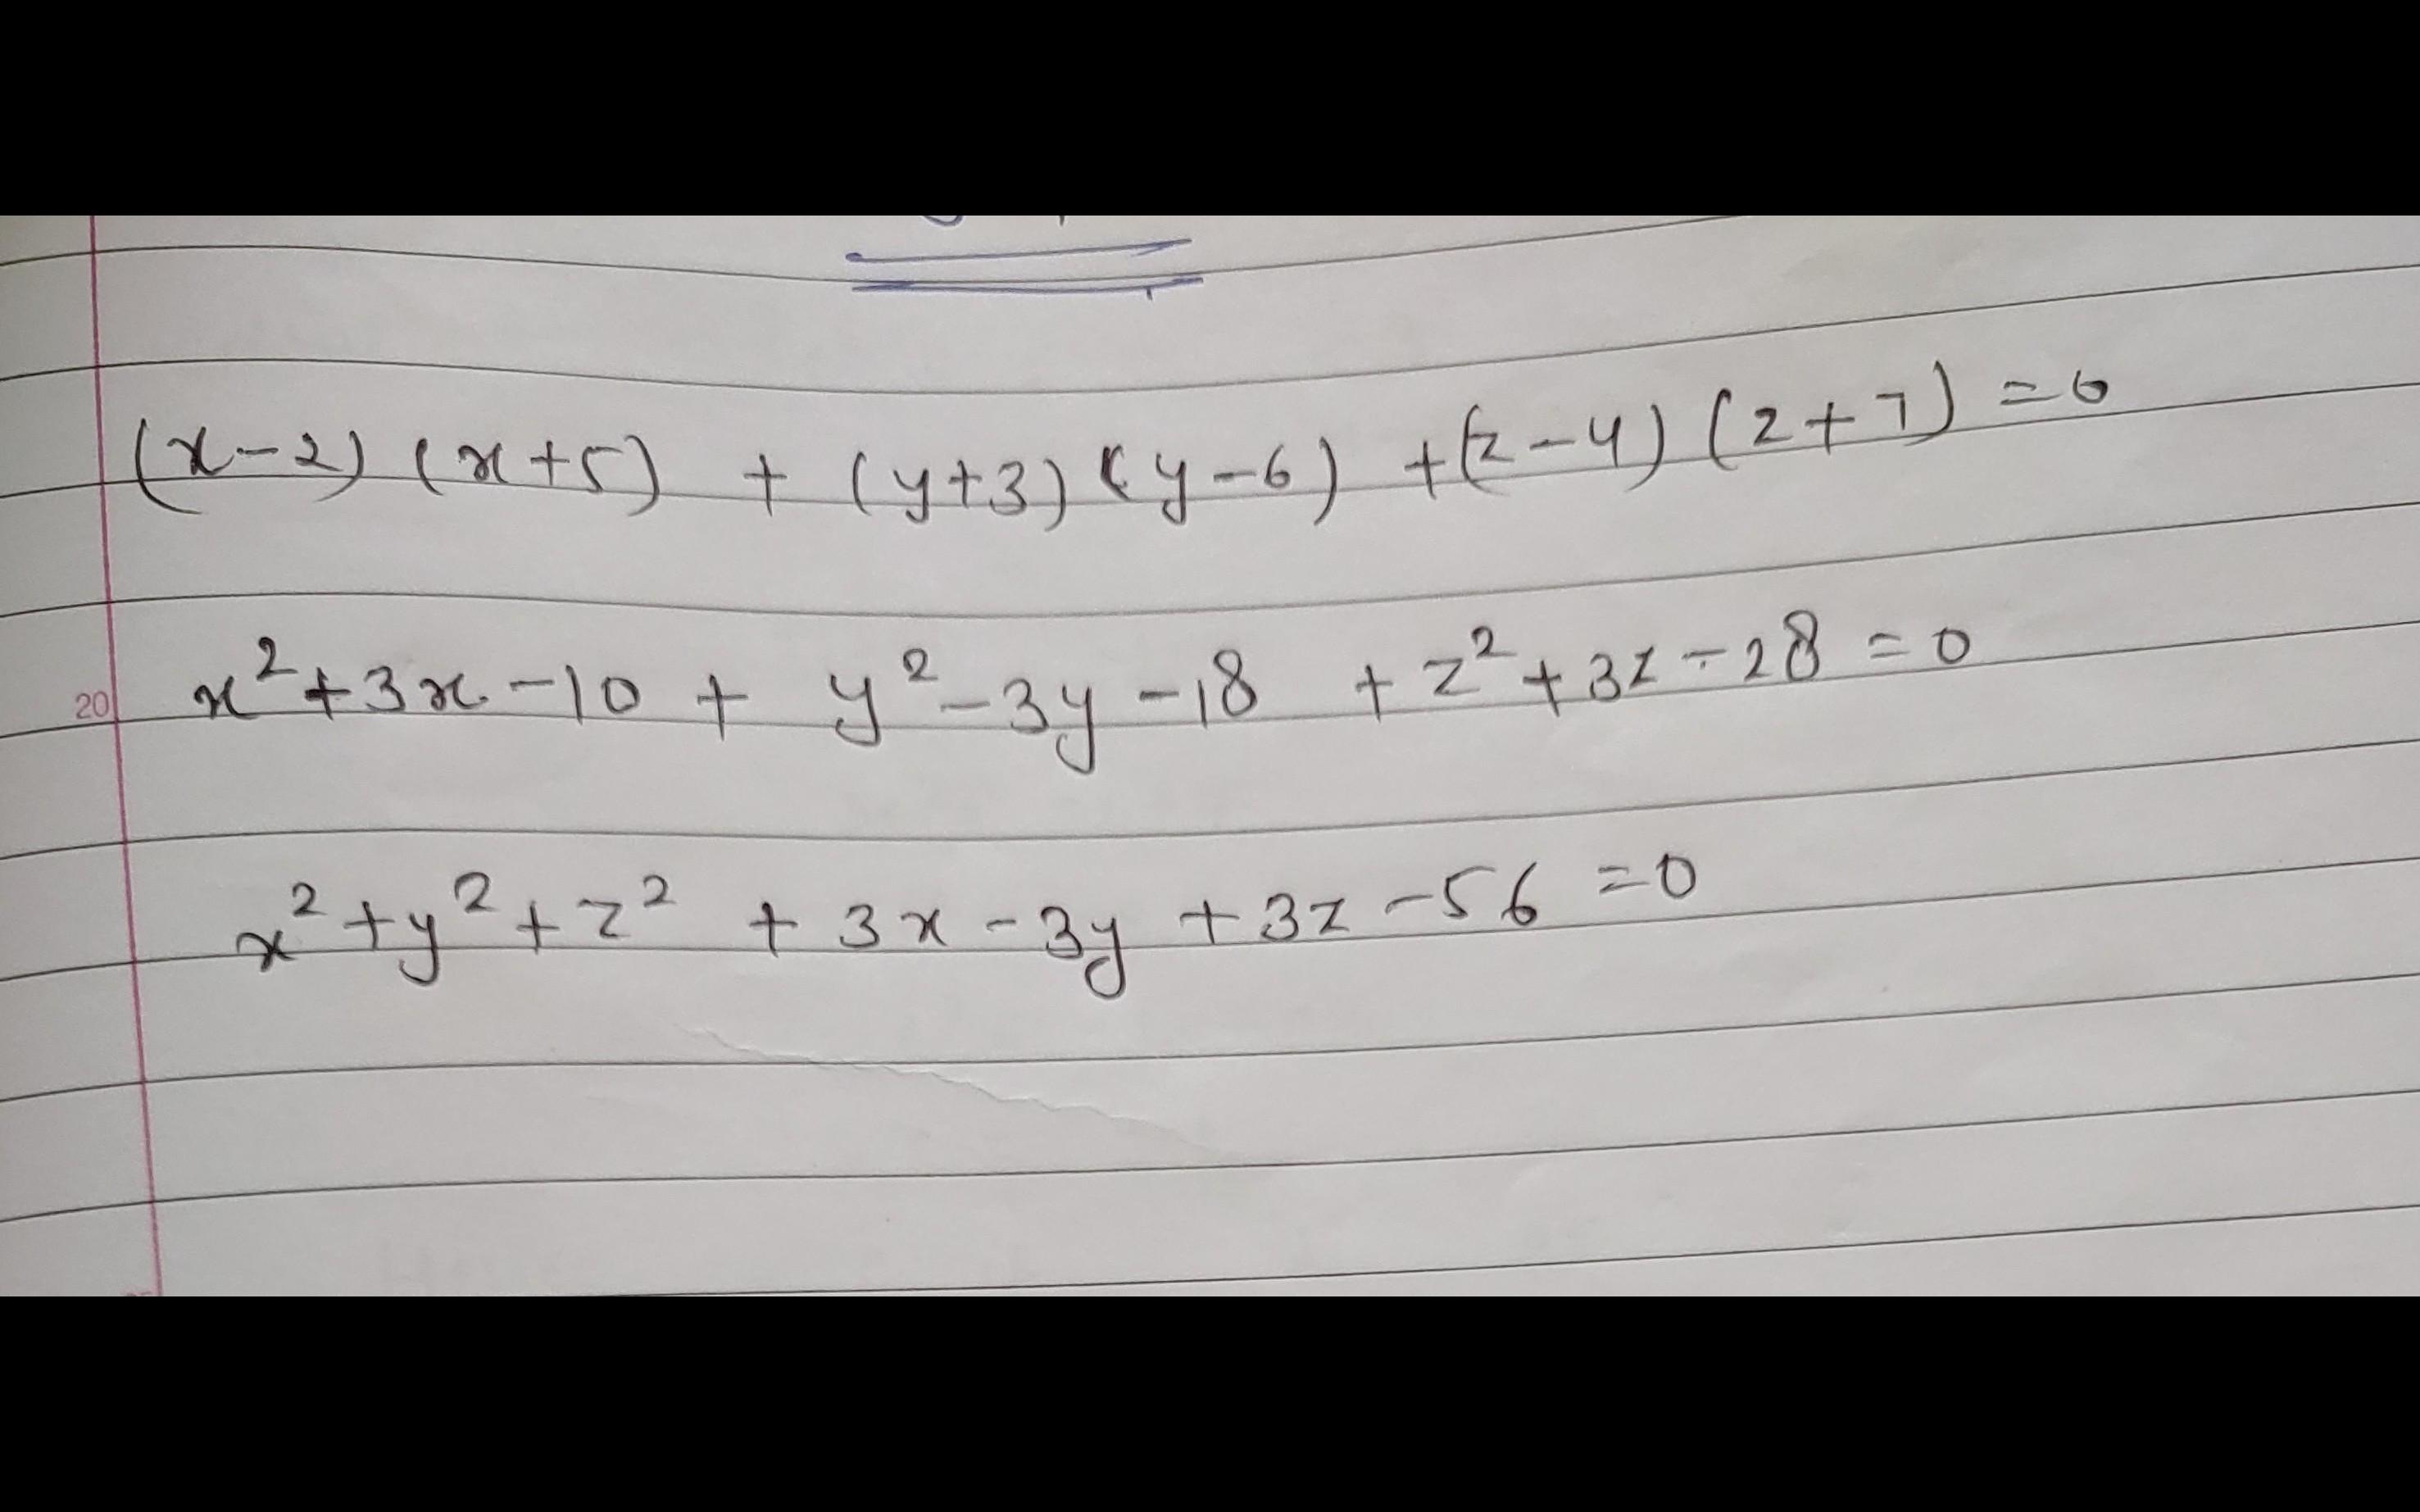 (x-2) (x+5) + (y+3) (y-6) + (z-4) (z+7) = 0
20 x² + 3x - 10 + y² - 3y - 18 + z² + 3z - 28 = 0
x² + y² + z² + 3x - 3y + 3z - 56 = 0